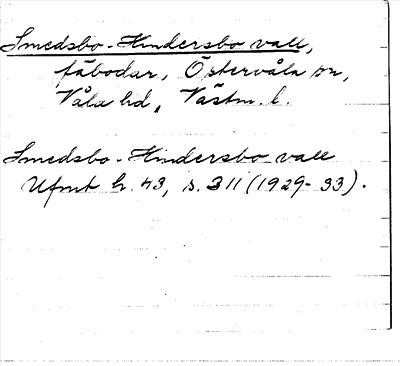 Smedsbo-Hindersbo vall,
fäbodar, Östervåla sn,
Våla hd, Västm. l.
Smedsbo-Hindersbo vall
Ufmt h. 43, s. 311 (1929-33).